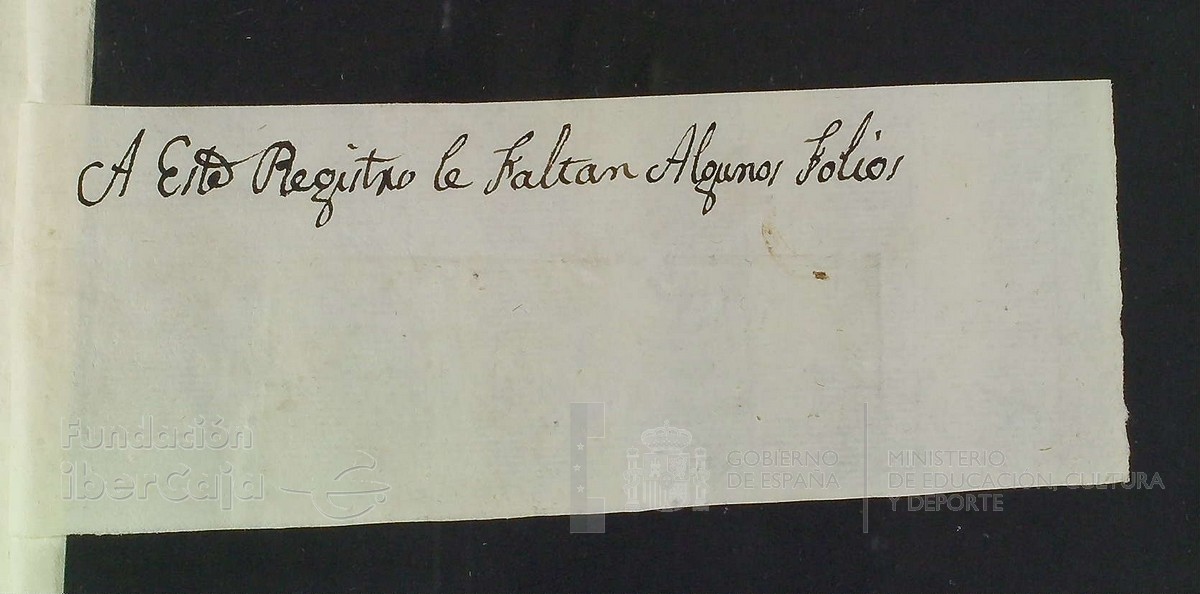 A Este Registro le Faltan Algunos Folios
Fundación
iberCaja
GOBIERNO
DE ESPAÑA
MINISTERIO
DE EDUCACIÓN, CULTURA
Y DEPORTE